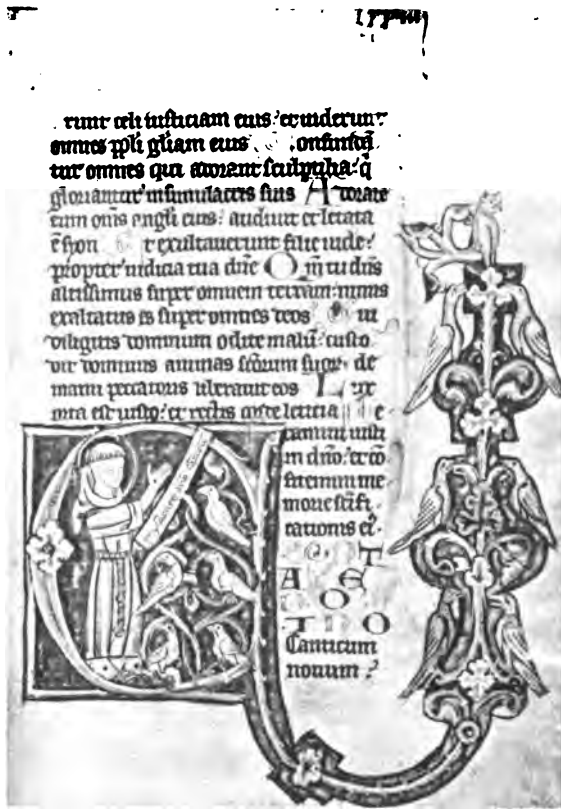 runt celi iusticiam eius: et uiderunt
omnes ppli gliam eius onfundā
tur omnes qui adorant sculptilia: q̄
gloriantur in simulacris suis Adorate
eum oms angli eius: audiuit et letata
ē syon t exultauerunt filie iude:
propter iudicia tua dn̄e Qm̄ tu dn̄s
altissimus super omnem terram: nimis
exaltatus es super omnes deos ui
diligitis dominum odite malū: custo
dit dominus animas scōrum suor de
manu peccatoris liberauit eos Lux
orta est iusto: et rectis corde leticia e
tamini iusti
in dn̄o: et cō
fitemini me
morie scīfi
cationis ei
T
A E
O
T O
Canticum
nouum: